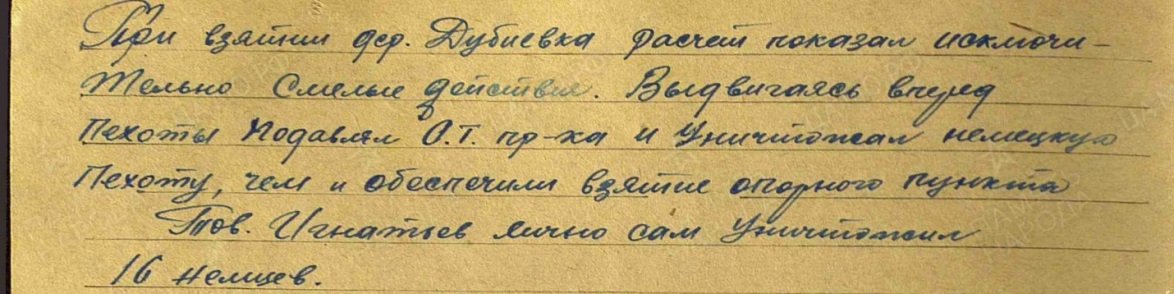 При взятии дер. Дубиевка расчет показал исключи-
тельно смелые действия. Выдвигаясь вперед
пехоты подавлял О.Т. пр-ка и уничтожал немецкую
пехоту, чем и обеспечили взятие опорного пункта
Тов. Игнатьев лично сам уничтожил
16 немцев.